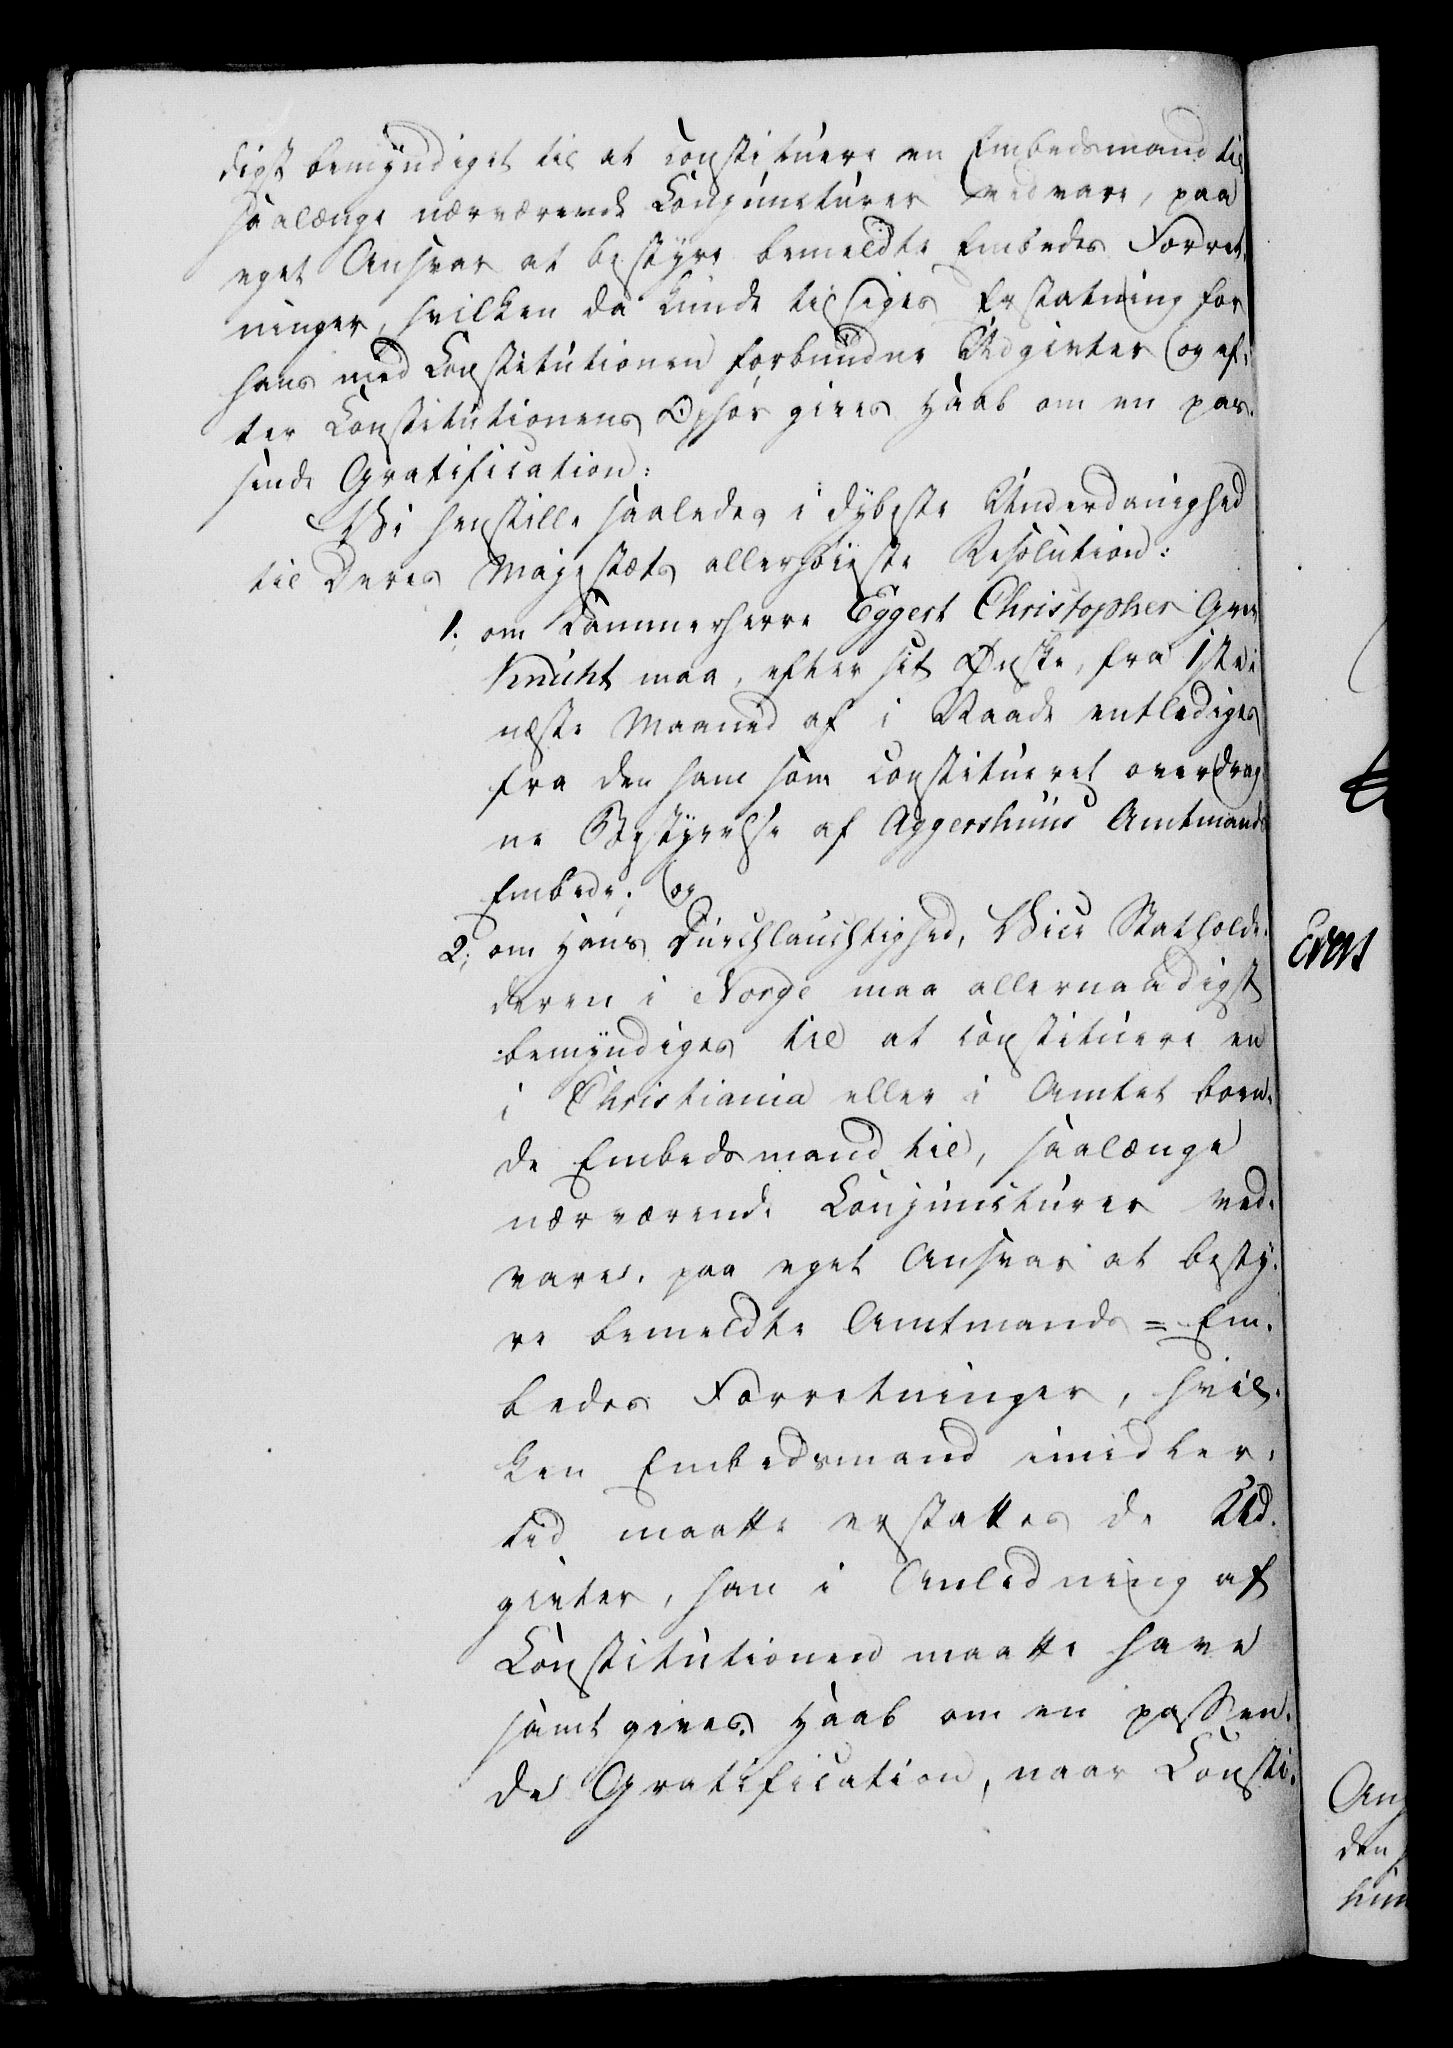 digst bemyndiget til at constituere en Embedsmand til
saalænge nærværende Conjuncturer vedvare, paa
eget Ansvar at bestyre bemeldte Embedes Forret-
ninger, hvilken da kunde tilsiges Erstatning for
hans med Constitutionen forbundne Udgivter og ef-
ter Constitutionens Ophør gives Haab om en pas-
sende Gratification:
Vi henstille saaledes i dybeste Underdanighed
til Deres Majestæts allerhøieste Resolution:
1. om Kammerherre Eggert Christopher Grev
Knuht maa, efter sit Ønske, fra 1ste i
næste Maaned af i Naade entlediges
fra den ham som constitueret overdrag-
ne Bestyrelse af Aggershuus Amtmands
Embede; og
2; om Hans Durchlauchtighed, Vice Statholde-
deren i Norge maa allernaadigst
bemyndiges til at constituere en
i Christiania eller i Amtet boen-
de Embedsmand til, saalænge
nærværende Conjuncturer ved-
vare, paa eget Ansvar at besty-
re bemeldte Amtmands=Em-
bedes Forretninger, hvil-
ken Embedsmand imidler-
tid maatte erstattes de Ud-
givter, han i Anledning af
Constitutionen maatte have
samt gives Haab om en passen-
de Gratification, naar Consti-